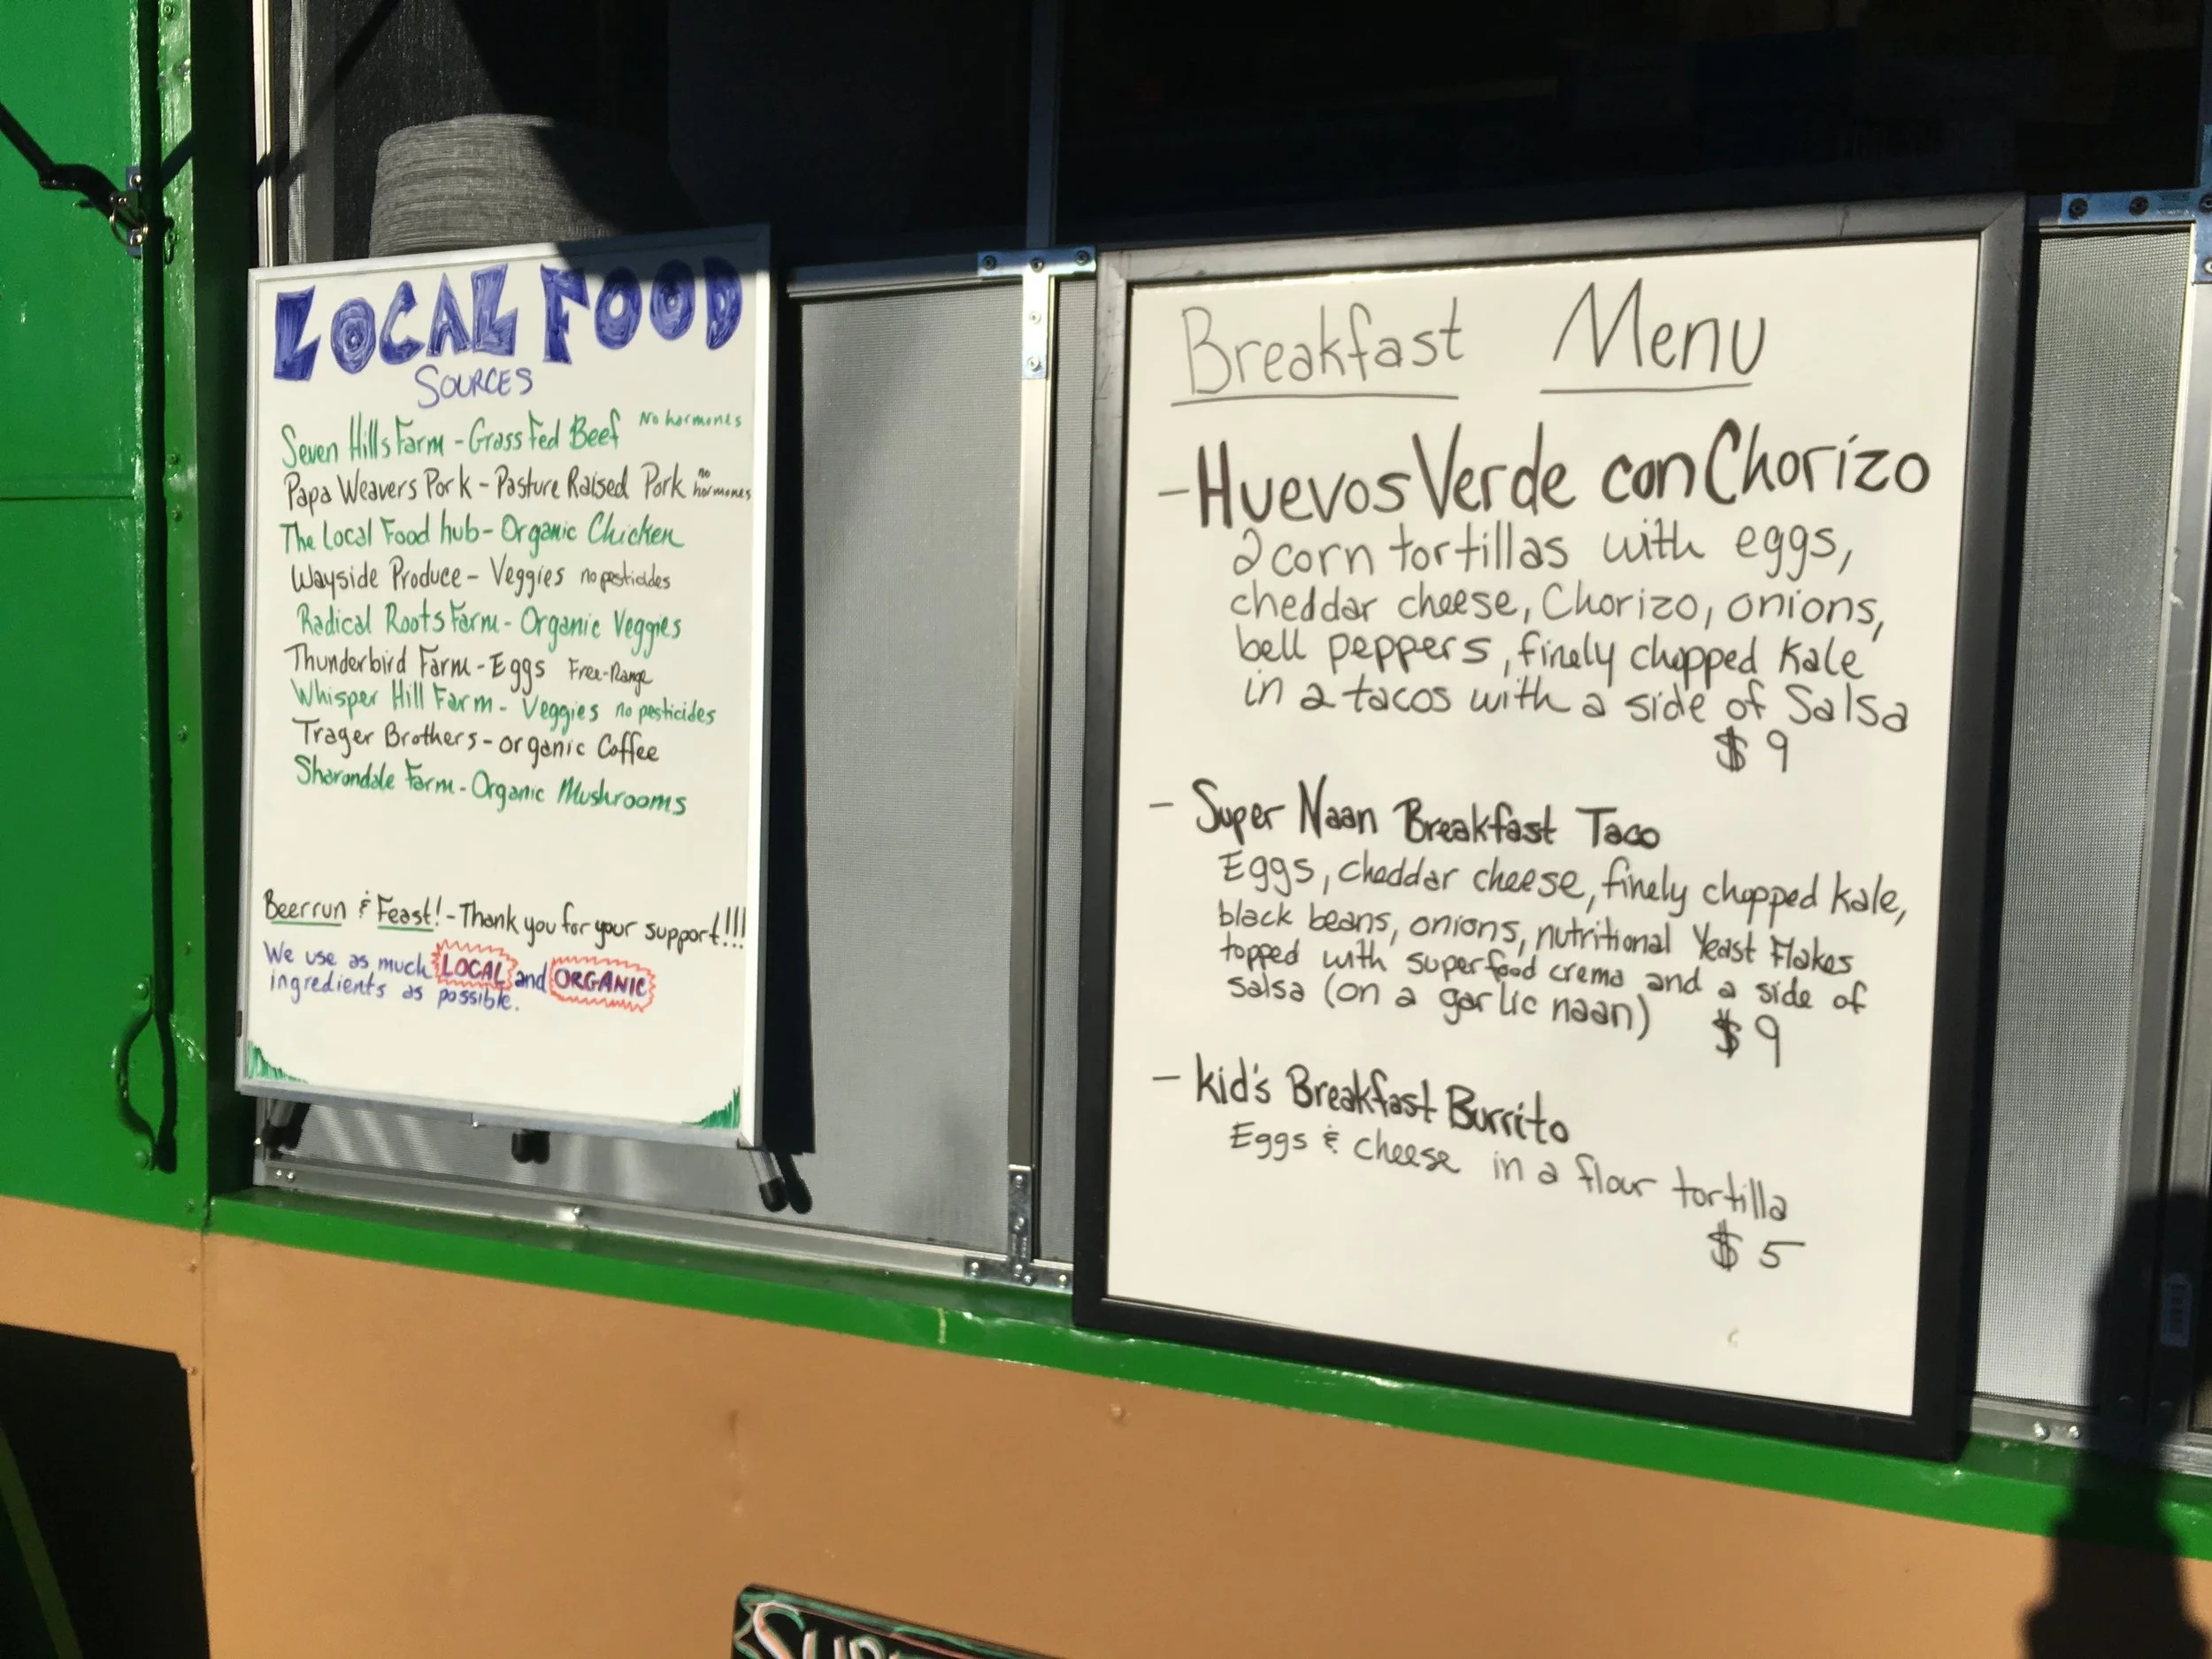 LOCAL FOOD
SOURCES
Seven Hills Farm - Grass Fed Beef No hormones
Papa Weavers Pork - Pasture Raised Pork no hormones
The Local Food hub - Organic Chicken
Wayside Produce - Veggies no pesticides
Radical Roots Farm - Organic Veggies
Thunderbird Farm - Eggs Free-Range
Whisper Hill Farm - Veggies no pesticides
Trager Brothers - organic Coffee
Sharondale Farm - Organic Mushrooms
Beerrun & Feast! - Thank you for your support!!!
We use as much LOCAL and ORGANIC
ingredients as possible.
Breakfast Menu
- Huevos Verde con Chorizo
2 corn tortillas with eggs,
cheddar cheese, Chorizo, onions,
bell peppers, finely chopped Kale
in 2 tacos with a side of Salsa
$9
- Super Naan Breakfast Taco
Eggs, cheddar cheese, finely chopped kale,
black beans, onions, nutritional Yeast Flakes
topped with superfood crema and a side of
salsa (on a garlic naan) $9
- Kid's Breakfast Burrito
Eggs & cheese in a flour tortilla
$5